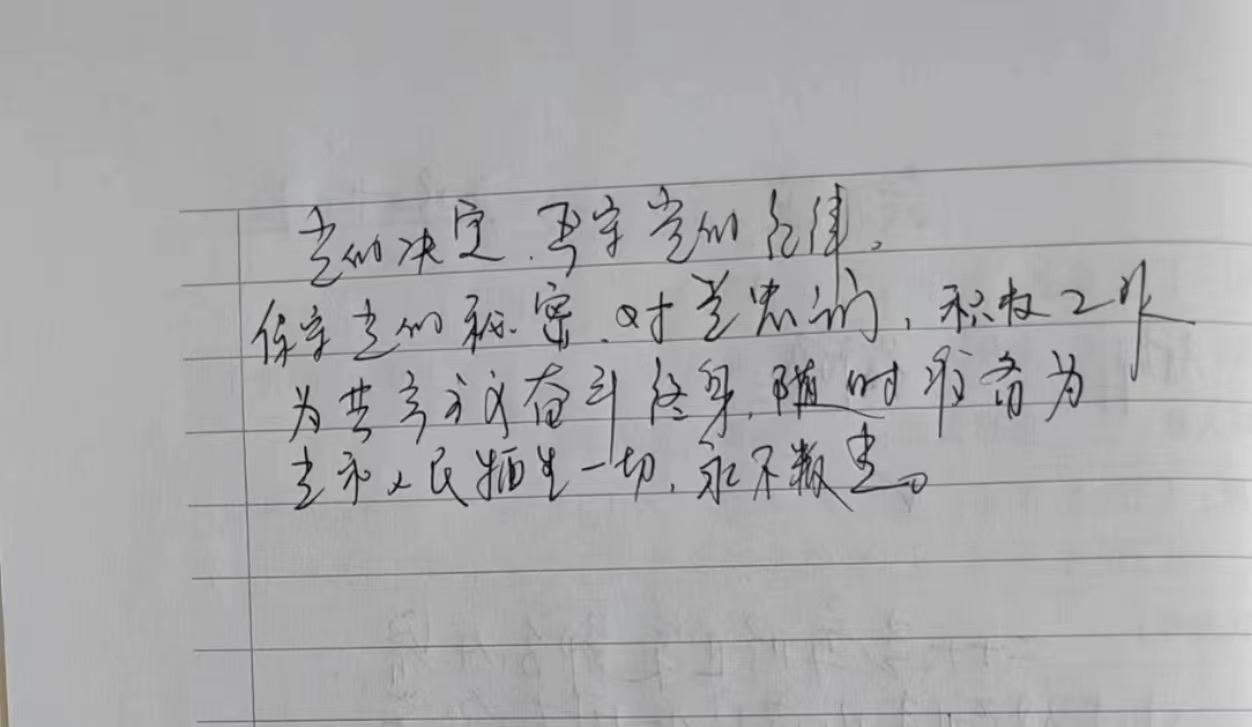 党的决定，严守党的纪律，
保守党的秘密，对党忠诚，积极工作
为共产主义奋斗终身，随时准备为
党和人民牺牲一切，永不叛党。